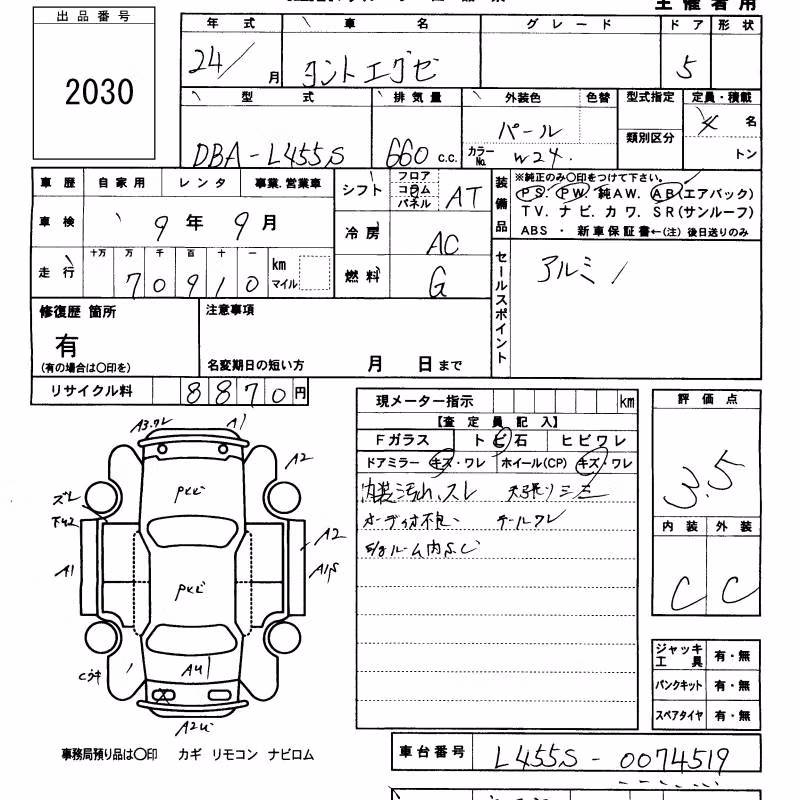 主催者用
出品番号
2030
年式 車名 グレード ドア 形状
24/ 月 タントエグゼ 5
型式 排気量 外装色 色替 型式指定 定員・積載
DBA-L455S 660 c.c. パール 類別区分 4 名
カラーNo. W24. トン
車歴 自家用 レンタ 事業.営業車
シフト フロア コラム パネル AT
装備品 ※純正のみ〇印をつけて下さい。
PS. PW. 純AW. AB(エアバック)
TV. ナビ. カワ. SR(サンルーフ)
ABS ・ 新車保証書←(注) 後日送りのみ
車検 9年9月
冷房 AC
走行 十万 万 千 百 十 一 km マイル
70910
燃料 G
セールスポイント アルミ
修復歴 箇所 注意事項
有
(有の場合は〇印を) 名変期日の短い方 月 日まで
リサイクル料 8870円
現メーター指示 km
評価点
【査定員記入】
Fガラス トビ石 ヒビワレ
ドアミラー キズ・ワレ ホイール(CP) キズ・ワレ
内装汚れ、スレ 天張りシミ
オーディオ不良、 テールワレ
3.5
内装 外装
C C
A1
A2
ズレ
A2
A1
PGビ
A1S
Cウキ
AU1
ジャッキ工具 有・無
パンクキット 有・無
スペアタイヤ 有・無
事務局預り品は〇印 カギ リモコン ナビロム
車台番号 L455S-0074519